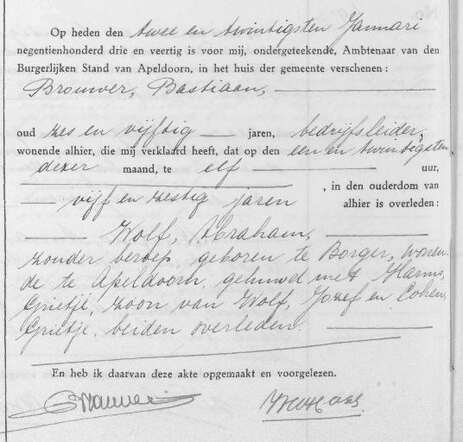 Op heden den twee en twintigsten Januari
negentienhonderd drie en veertig is voor mij, ondergeteekende, Ambtenaar van den
Burgerlijken Stand van Apeldoorn, in het huis der gemeente verschenen:
Brouwer, Bastiaan,
oud zes en vijftig jaren, bedrijfsleider,
wonende alhier, die mij verklaard heeft, dat op den een en twintigsten
dezer maand, te elf uur,
, in den ouderdom van
vijf en zestig jaren alhier is overleden:
Wolf, Abraham,
zonder beroep, geboren te Borger, wonen-
de te Apeldoorn, gehuwd met Harms,
Grietje, zoon van Wolf, Jozef en Cohen,
Grietje, beiden overleden.
En heb ik daarvan deze akte opgemaakt en voorgelezen.